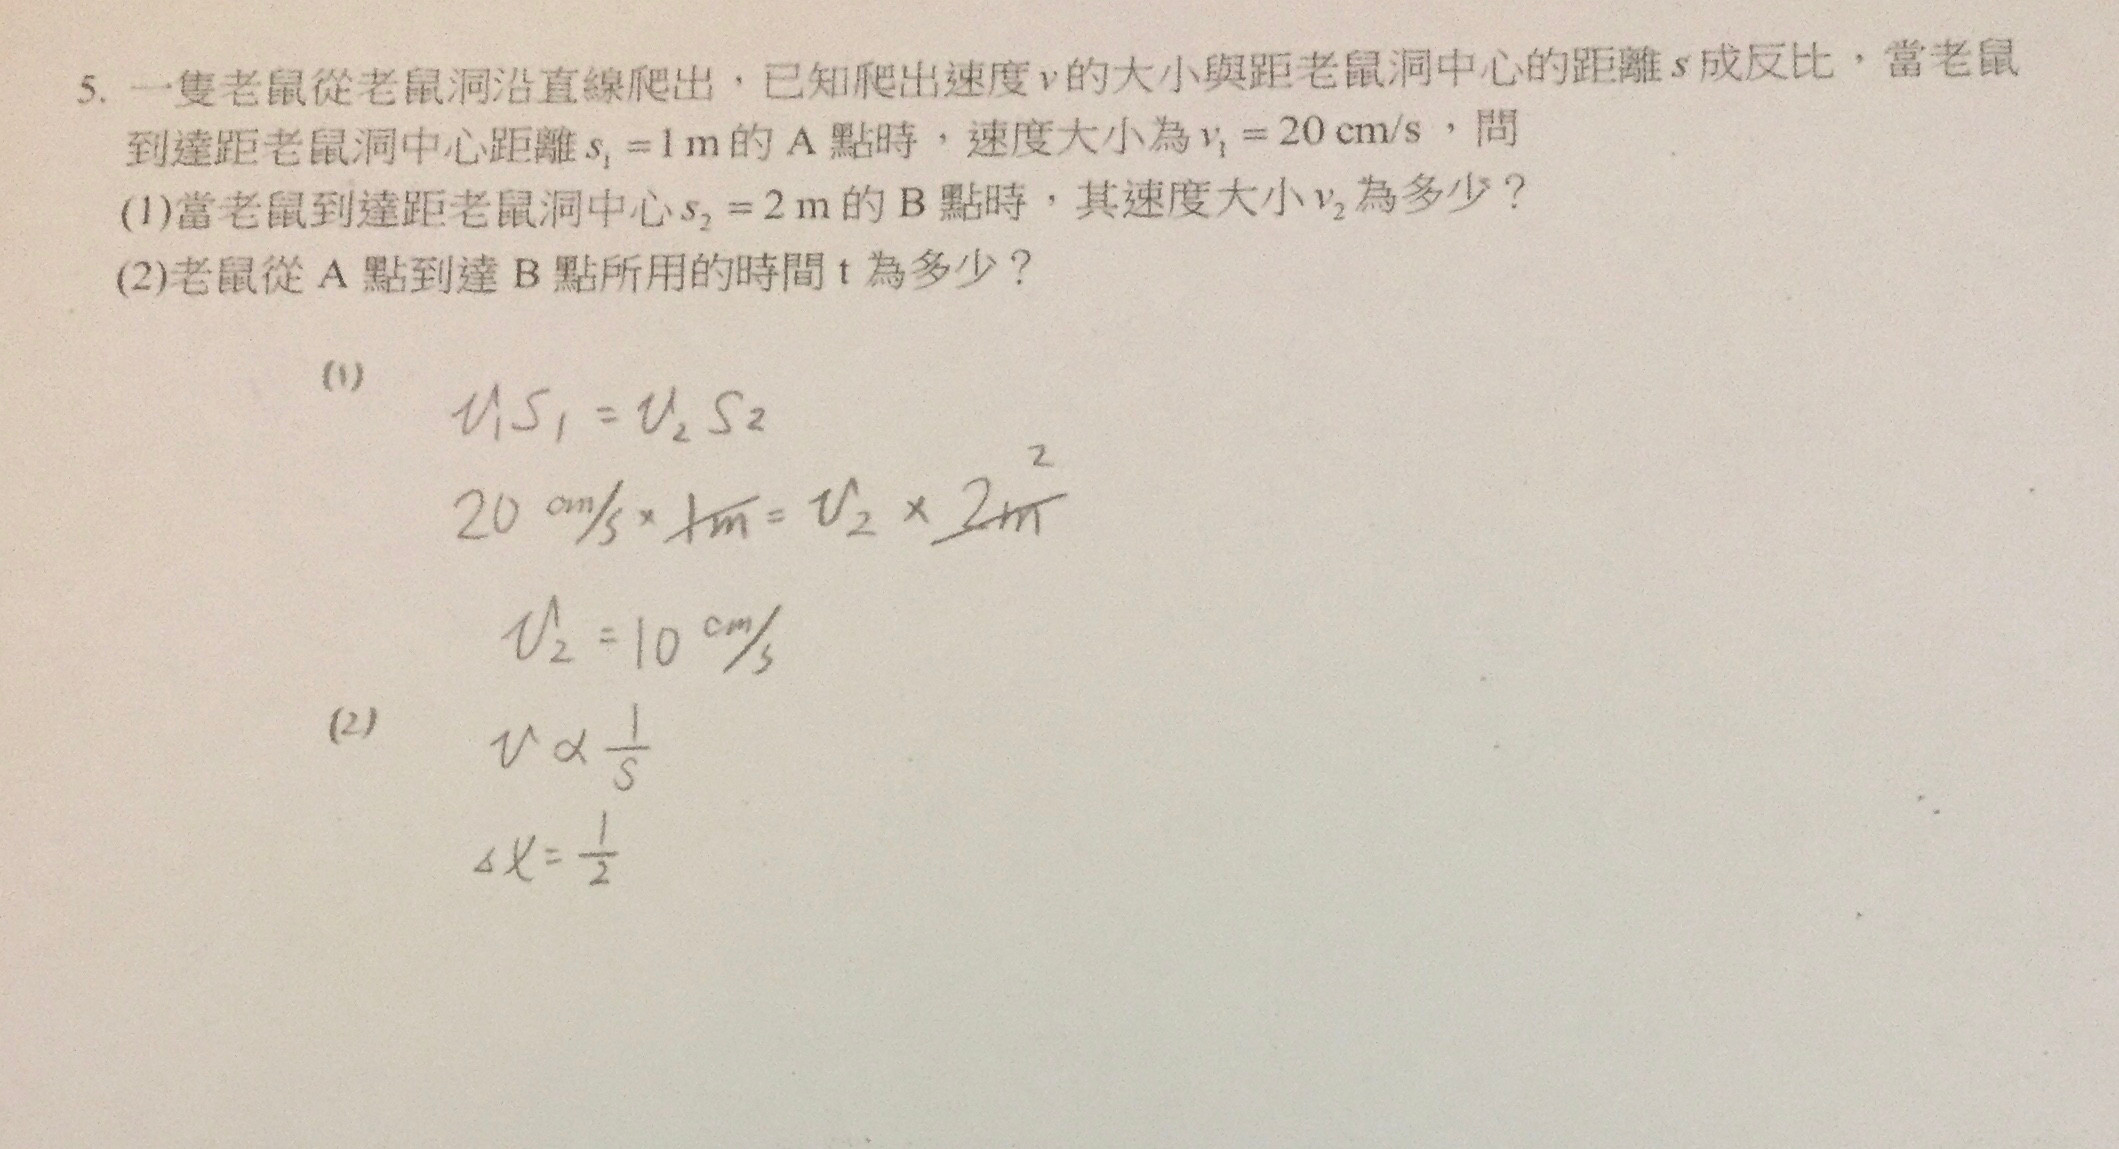 5. 一隻老鼠從老鼠洞沿直線爬出，已知爬出速度v的大小與距老鼠洞中心的距離s成反比，當老鼠
到達距老鼠洞中心距離s₁=1m的 A 點時，速度大小為v₁=20 cm/s，問
(1)當老鼠到達距老鼠洞中心s₂=2m的 B 點時，其速度大小v₂為多少？
(2)老鼠從 A 點到達 B 點所用的時間 t 為多少？
(1)
v₁s₁=v₂s₂
2
20 cm/s×1m=v₂×2m
v₂=10 cm/s
(2) v∝1/s
△x=1/2